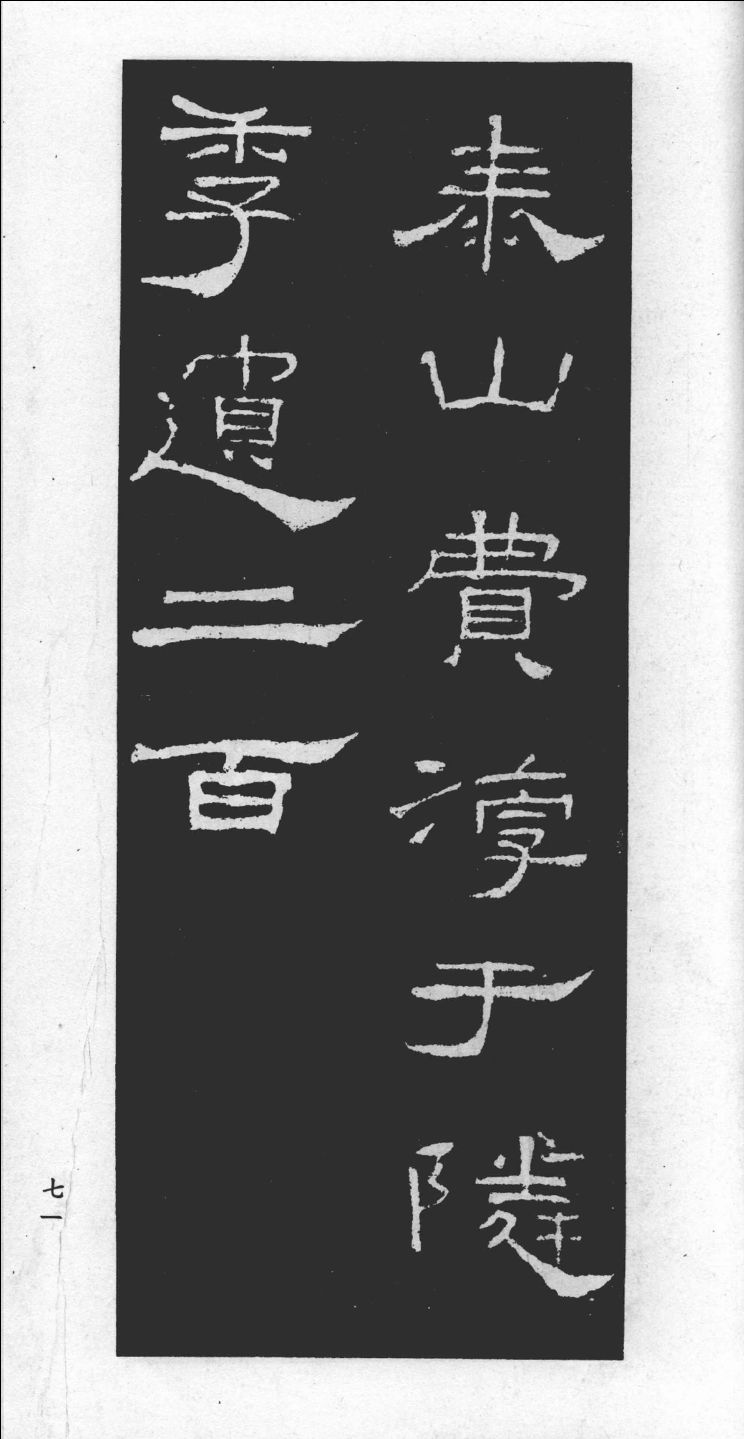 泰山費淳于隣
季遺二百
七一